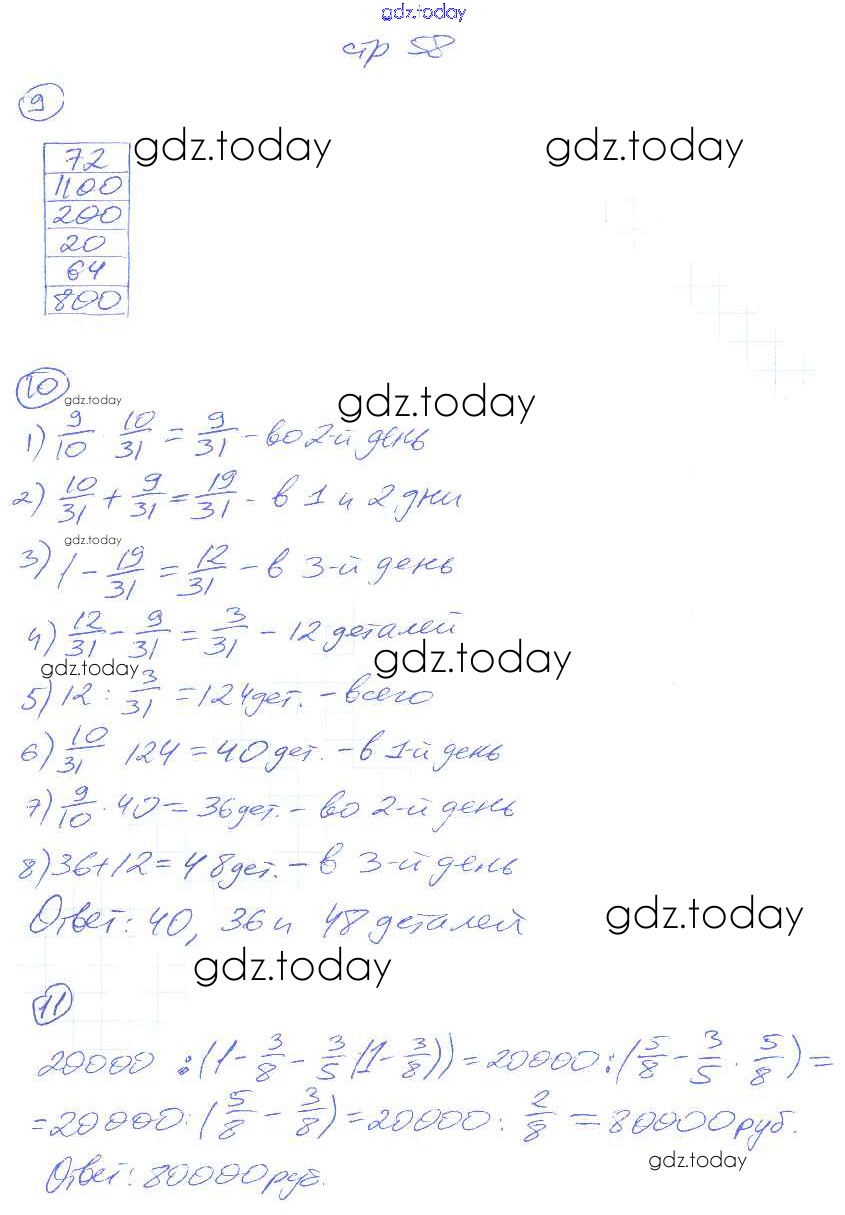 gdz.today
стр 58
9
72 gdz.today gdz.today
1100
200
20
64
800
10 gdz.today gdz.today
1) 9/10 · 10/31 = 9/31 - во 2-й день
2) 10/31 + 9/31 = 19/31 - в 1 и 2 дни
gdz.today
3) 1 - 19/31 = 12/31 - в 3-й день
4) 12/31 - 9/31 = 3/31 - 12 деталей
gdz.today gdz.today
5) 12 : 3/31 = 124 дет. - всего
6) 10/31 124 = 40 дет. - в 1-й день
7) 9/10 · 40 = 36 дет. - во 2-й день
8) 36+12 = 48 дет. - в 3-й день
Ответ: 40, 36 и 48 деталей gdz.today
gdz.today
11
20000 : (1 - 3/8 - 3/5 (1 - 3/8)) = 20000 : (5/8 - 3/5 · 5/8) =
= 20000 : (5/8 - 3/8) = 20000 : 2/8 = 80000 руб.
gdz.today
Ответ: 80000 руб.